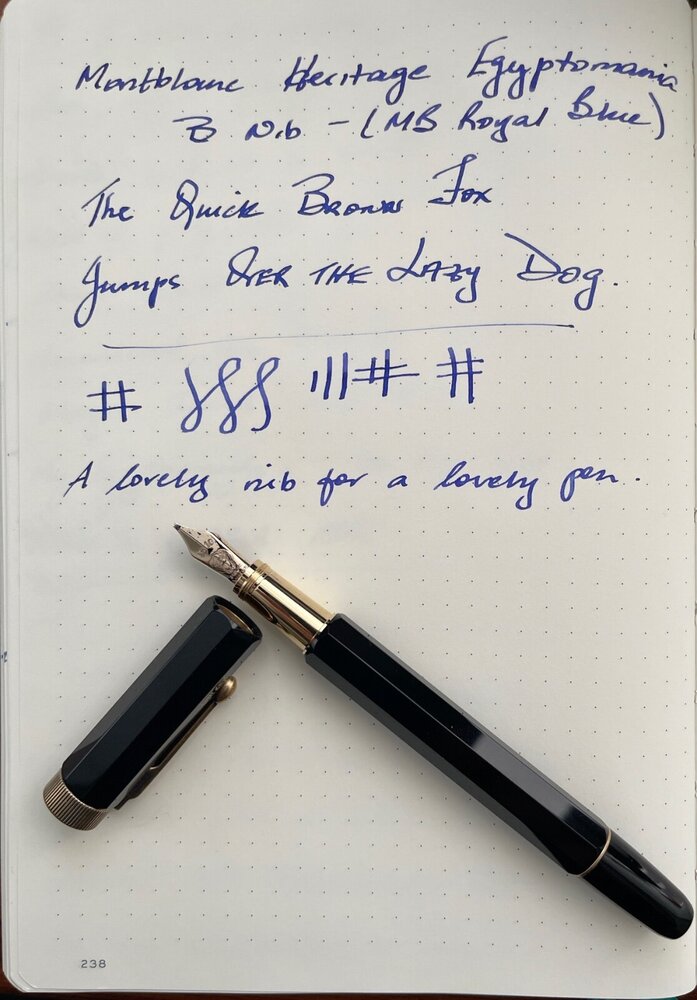 Montblanc Heritage Egyptomania
B Nib - (MB Royal Blue)
The Quick Brown Fox
Jumps Over THE LAZY Dog.
# |||# #
A lovely nib for a lovely pen.
238